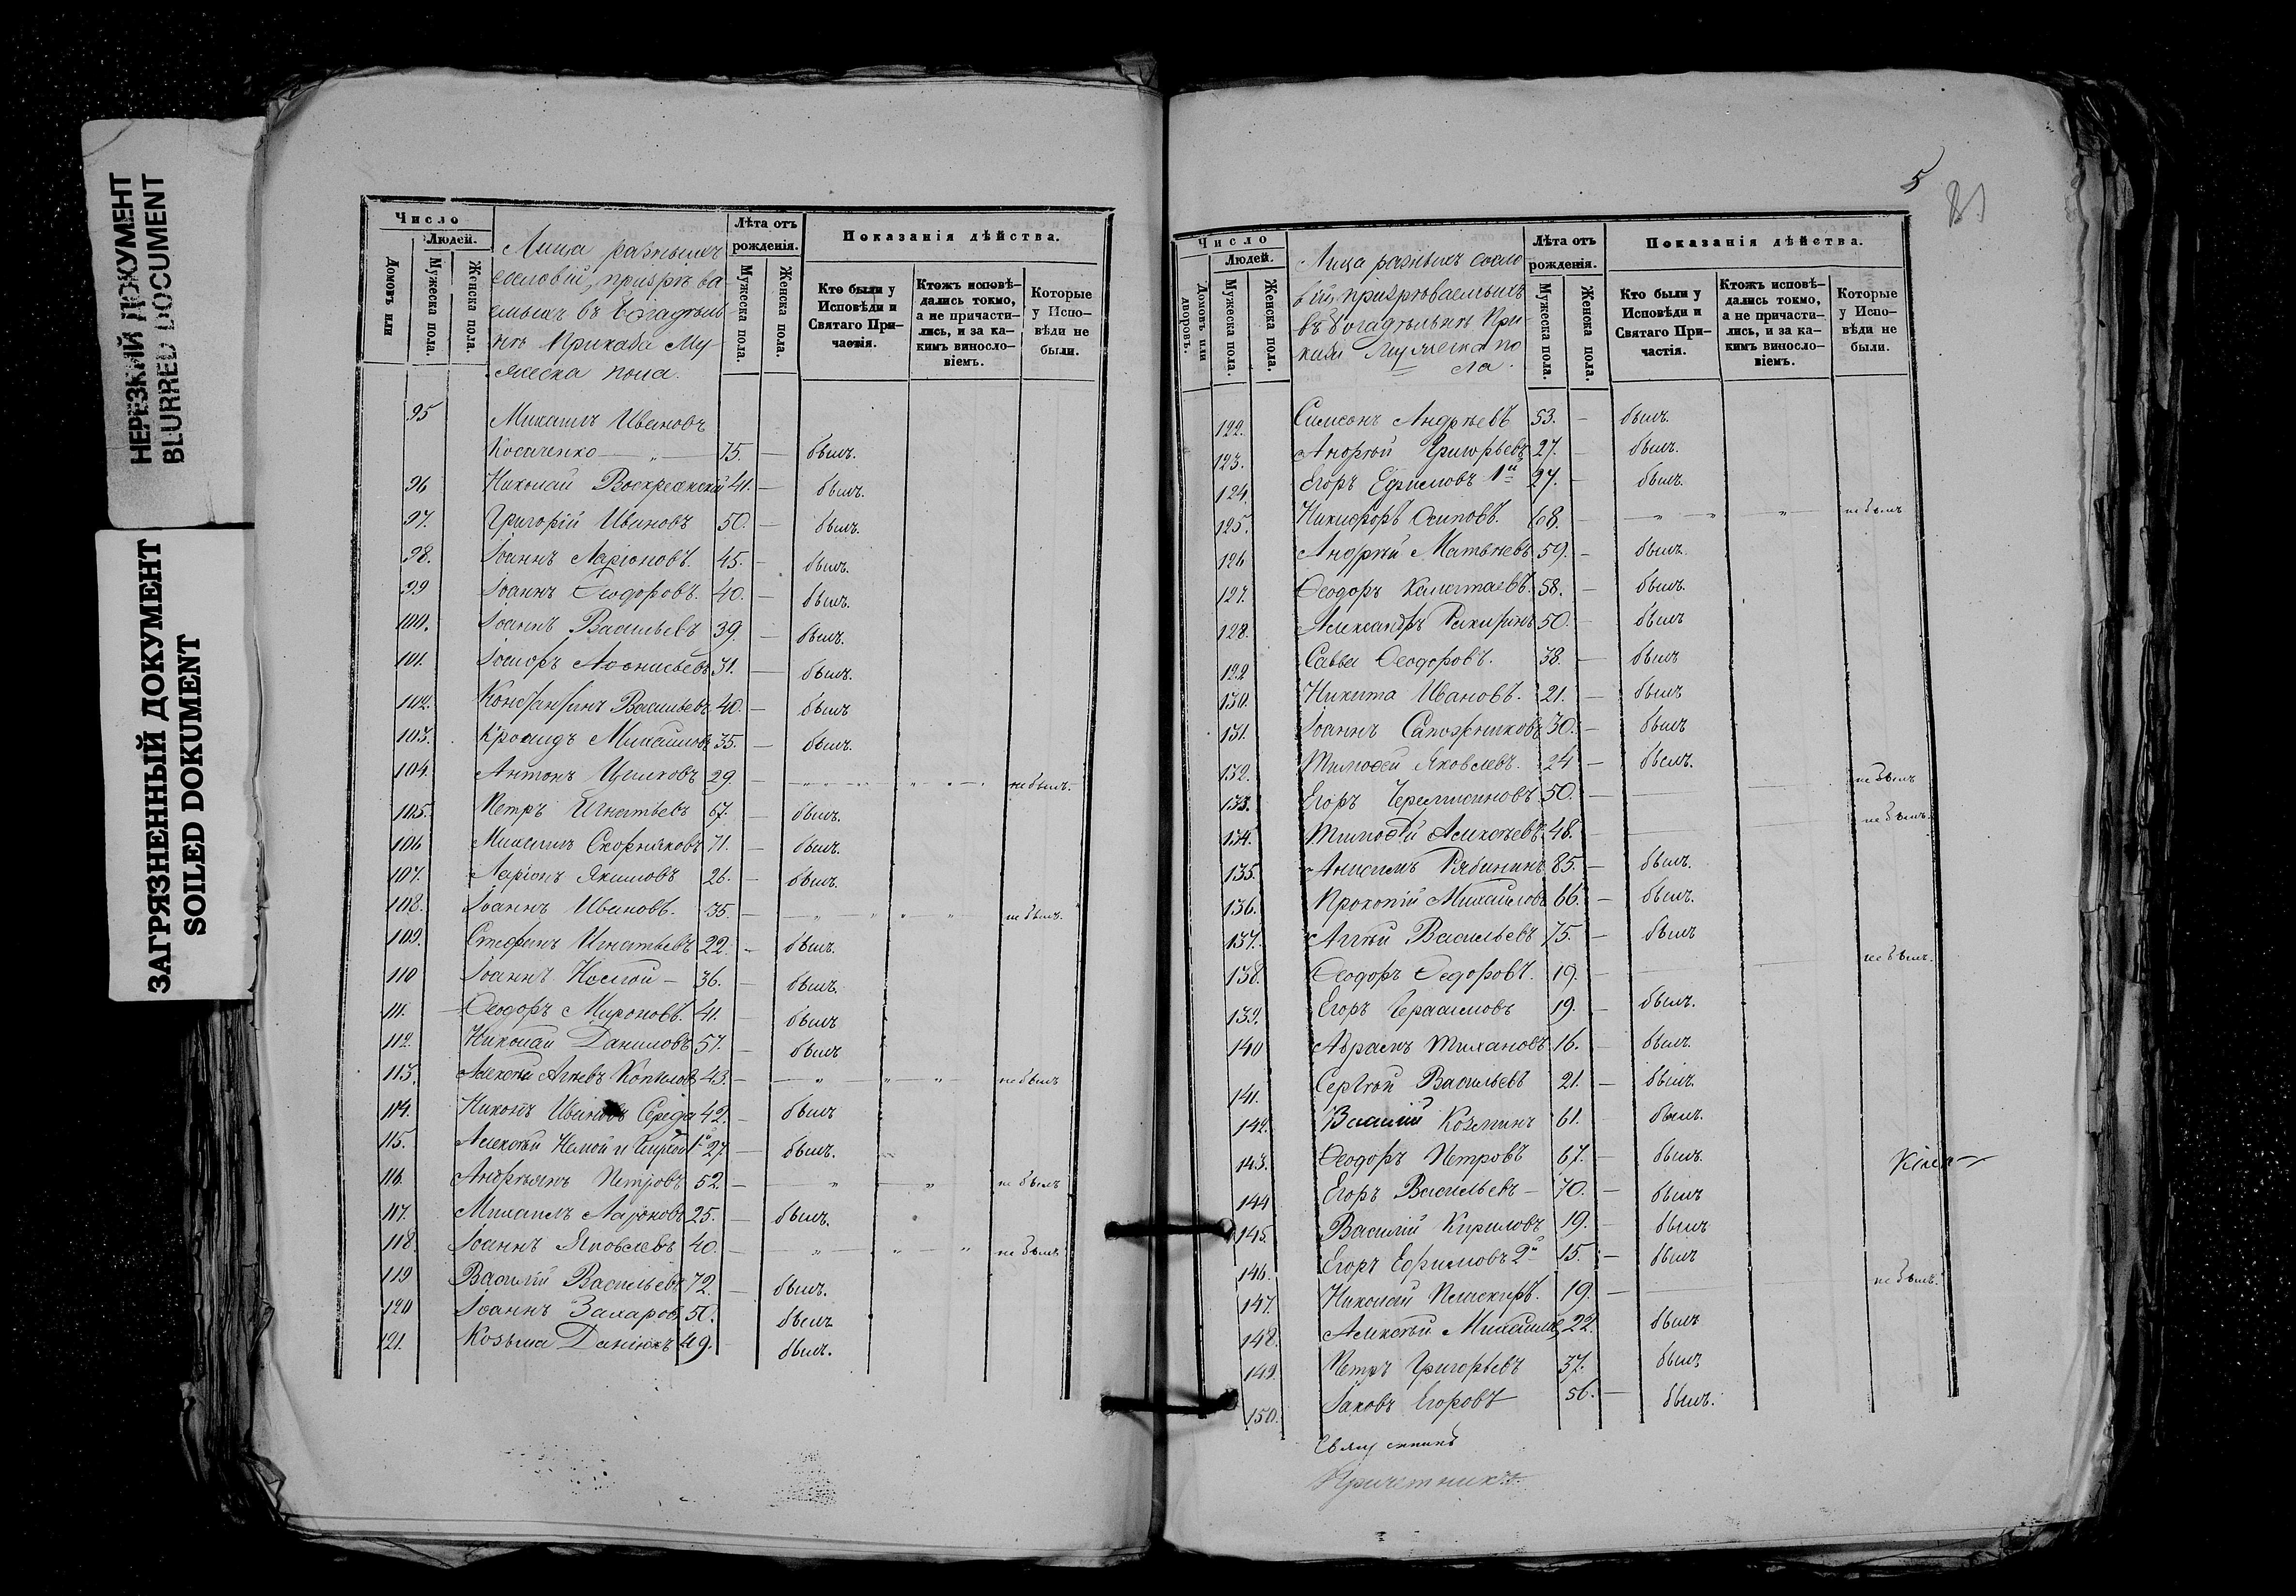 НЕРЕЗКИЙ ДОКУМЕНТ
BLURRED DOCUMENT
ЗАГРЯЗНЕННЫЙ ДОКУМЕНТ
SOILED DOKUMENT
Число
Людей.
Домовъ или
Мужеска пола.
Женска пола.
Лица разныхъ
сословій, призрѣва
емыхъ въ Богадѣль
нѣ Приказа Му
жеска пола.
Лѣта отъ рожденія.
Мужеска пола.
Женска пола.
Показанія дѣйства.
Кто были у Исповѣди и Святаго Причастія.
Ктожъ исповѣдались токмо, а не причастились, и за какимъ винословіемъ.
Которые у Исповѣди не были.
95 Михаилъ Ивановъ
Косаченко — „ — 75. — былъ.
96 Николай Воскресенскій 41. — былъ.
97. Григорій Ивановъ 50. — былъ.
98. Іоаннъ Ларіоновъ. 45. — былъ.
99 Іоаннъ Ѳеодоровъ. 40. — былъ.
100. Іоаннъ Васильевъ 39. — былъ.
101. 31. — былъ.
102. Константинъ Васильевъ 40. — былъ
103. Михайловъ 35. — былъ.
104. Антонъ 29. — не былъ.
105. Петръ Игнатьевъ 67. — былъ.
106 Михаилъ Скорняковъ 71. — былъ.
107. Ларіонъ Якимовъ 26. — былъ.
108. Іоаннъ Ивановъ. 35. — не былъ.
109. Стефанъ Игнатьевъ 22. — былъ.
110 Іоаннъ Немой — 36. — былъ.
111. Ѳеодоръ Мироновъ. 41. — былъ
112. Николай Даниловъ 57. — былъ
113. Алексѣй Копыловъ 43. — не былъ
114. Никонъ Ивановъ Середа 42. — былъ
115. Алексѣй Немой и 1й 27 — былъ.
116. Андреянъ Петровъ 52. — не былъ
117. Михаилъ Ларіоновъ 25. — былъ.
118. Іоаннъ Яковлевъ 40. — не былъ
119 Василій Васильевъ 72. — былъ.
120 Іоаннъ Захаровъ 50. былъ
121. Козьма 49. — былъ.
5
Число
Людей.
Домовъ или дворовъ.
Мужеска пола.
Женска пола.
Лица разныхъ сосло
вій призрѣваемыхъ
въ богадѣльнѣ При
каза Мужеска по
ла.
Лѣта отъ рожденія.
Мужеска пола.
Женска пола.
Показанія дѣйства.
Кто были у Исповѣди и Святаго Причастія.
Ктожъ исповѣдались токмо, а не причастились, и за какимъ винословіемъ.
Которые у Исповѣди не были.
122. Симеонъ Андреевъ 53. — былъ.
123. Андрей Григорьевъ 27. — былъ.
124. Егоръ Ефимовъ 1й 27. — былъ.
125. Никифоръ Осиповъ. 68. — не былъ
126 Андрей Матвѣевъ 59. — былъ.
127. Ѳеодоръ 58. — былъ.
128. Александръ 50. — былъ
129 Савва Ѳеодоровъ. 38. — былъ
130. Никита Ивановъ. 21. — былъ
131. Іоаннъ Сапожниковъ 30. — былъ
132. Тимоѳей Яковлевъ. 24 — былъ.
133. Егоръ Черемисиновъ 50. — не былъ
134. Тимоѳей Алексѣевъ 48. — не былъ.
135. Анисимъ Рябининъ 85. — былъ.
136. Прокопій Михайловъ 66. — былъ.
137. Васильевъ 75. — былъ
138. Ѳеодоръ Ѳедоровъ. 19. — не былъ.
139. Егоръ Герасимовъ 19. — былъ.
140 Абрамъ Тихановъ 16. — былъ.
141. Сергѣй Васильевъ 21. — былъ.
142. Василій Козминъ 61. — былъ.
143. Ѳеодоръ Петровъ 67. — былъ.
144 Егоръ Васильевъ — 70. — былъ
145. Василій Кириловъ 19. — былъ
146. Егоръ Ефимовъ 2й 15. — былъ
147. Николай 19. — не былъ.
148. Алексѣй Михайловъ 22. былъ
149. Петръ Григорьевъ 37. былъ
150. Іаковъ Егоровъ 56. — былъ.
Священникъ
Причетникъ